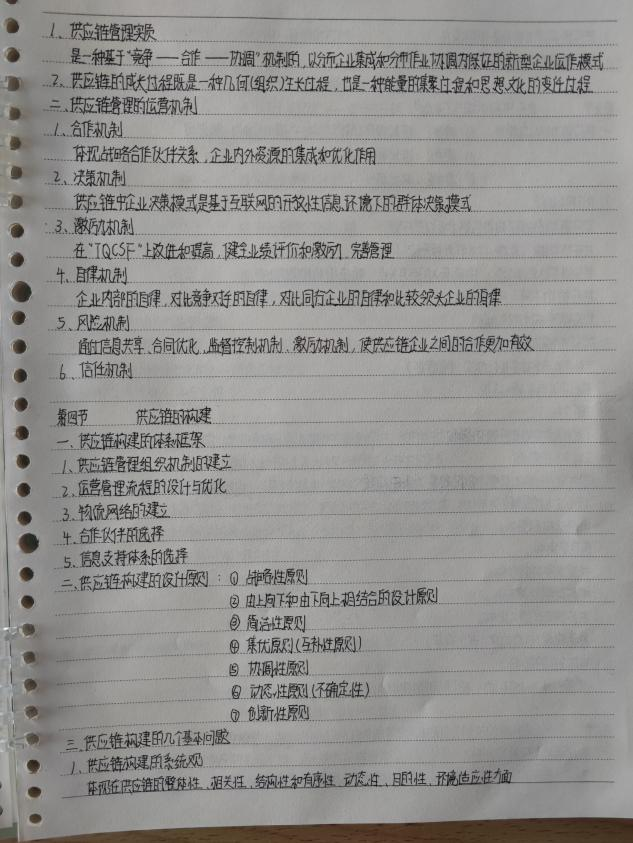 1、供应链管理实质
是一种基于"竞争——合作——协调"机制的，以分布企业集成和分布作业协调为保证的新型企业运作模式
2、供应链的成长过程既是一种几何(组织)生长过程，也是一种能量的集聚过程和思想文化的变迁过程
二、供应链管理的运营机制
1、合作机制
体现战略合作伙伴关系，企业内外资源的集成和优化作用
2、决策机制
供应链中企业决策模式是基于互联网的开放性信息环境下的群体决策模式
3、激励机制
在"TQCSF"上改进和提高，健全业绩评价和激励，完善管理
4、自律机制
企业内部的自律，对比竞争对手的自律，对比同行企业的自律和比较领头企业的自律
5、风险机制
通过信息共享、合同优化、监督控制机制、激励机制，使供应链企业之间的合作更加有效
6、信任机制
第四节 供应链的构建
一、供应链构建的体系框架
1、供应链管理组织机制的建立
2、运营管理流程的设计与优化
3、物流网络的建立
4、合作伙伴的选择
5、信息支持体系的选择
二、供应链构建的设计原则：① 战略性原则
② 由上向下和由下向上相结合的设计原则
③ 简洁性原则
④ 集优原则(互补性原则)
⑤ 协调性原则
⑥ 动态性原则(不确定性)
⑦ 创新性原则
三、供应链构建的几个基本问题
1、供应链构建的系统观
体现在供应链的整体性、相关性、结构性和有序性、动态性、目的性、环境适应性方面